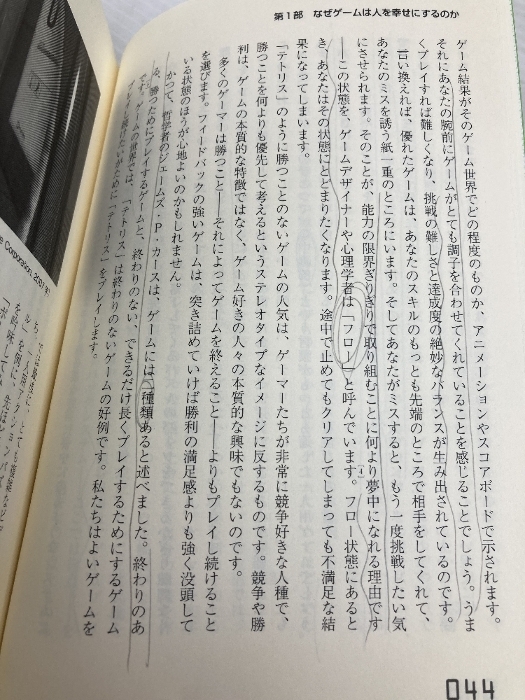 第1部　なぜゲームは人を幸せにするのか
ゲーム結果がそのゲーム世界でどの程度のものか、アニメーションやスコアボードで示されます。
それにあなたの腕前にゲームがとても調子を合わせてくれていることを感じることでしょう。うま
くプレイすれば難しくなり、挑戦の難しさと達成度の絶妙なバランスが生み出されているのです。
言い換えれば、優れたゲームは、あなたのスキルのもっとも先端のところで相手をしてくれて、
あなたのミスを誘う紙一重のところにいます。そしてあなたがミスすると、もう一度挑戦したい気
にさせられます。そのことが、能力の限界ぎりぎりで取り組むことに何より夢中になれる理由です
――この状態を、ゲームデザイナーや心理学者は「フロー」と呼んでいます。フロー状態にあると
き、あなたはその状態にとどまりたくなります。途中で止めてもクリアしてしまっても不満足な結
果になってしまいます。
「テトリス」のように勝つことのないゲームの人気は、ゲーマーたちが非常に競争好きな人種で、
勝つことを何よりも優先して考えるというステレオタイプなイメージに反するものです。競争や勝
利は、ゲームの本質的な特徴ではなく、ゲーム好きの人々の本質的な興味でもないのです。
多くのゲーマーは勝つこと――それによってゲームを終えること――よりもプレイし続けること
を選びます。フィードバックの強いゲームは、突き詰めていけば勝利の満足感よりも強く没頭して
いる状態のほうが心地よいのかもしれません。
かつて、哲学者のジェームズ・P・カースは、ゲームには二種類あると述べました。終わりのあ
る、勝つためにプレイするゲームと、終わりのない、できるだけ長くプレイするためにするゲーム
です。ゲームの世界では、「テトリス」は終わりのないゲームの好例です。私たちはよいゲームを
プレイし続けたいがために「テトリス」をプレイします。
044